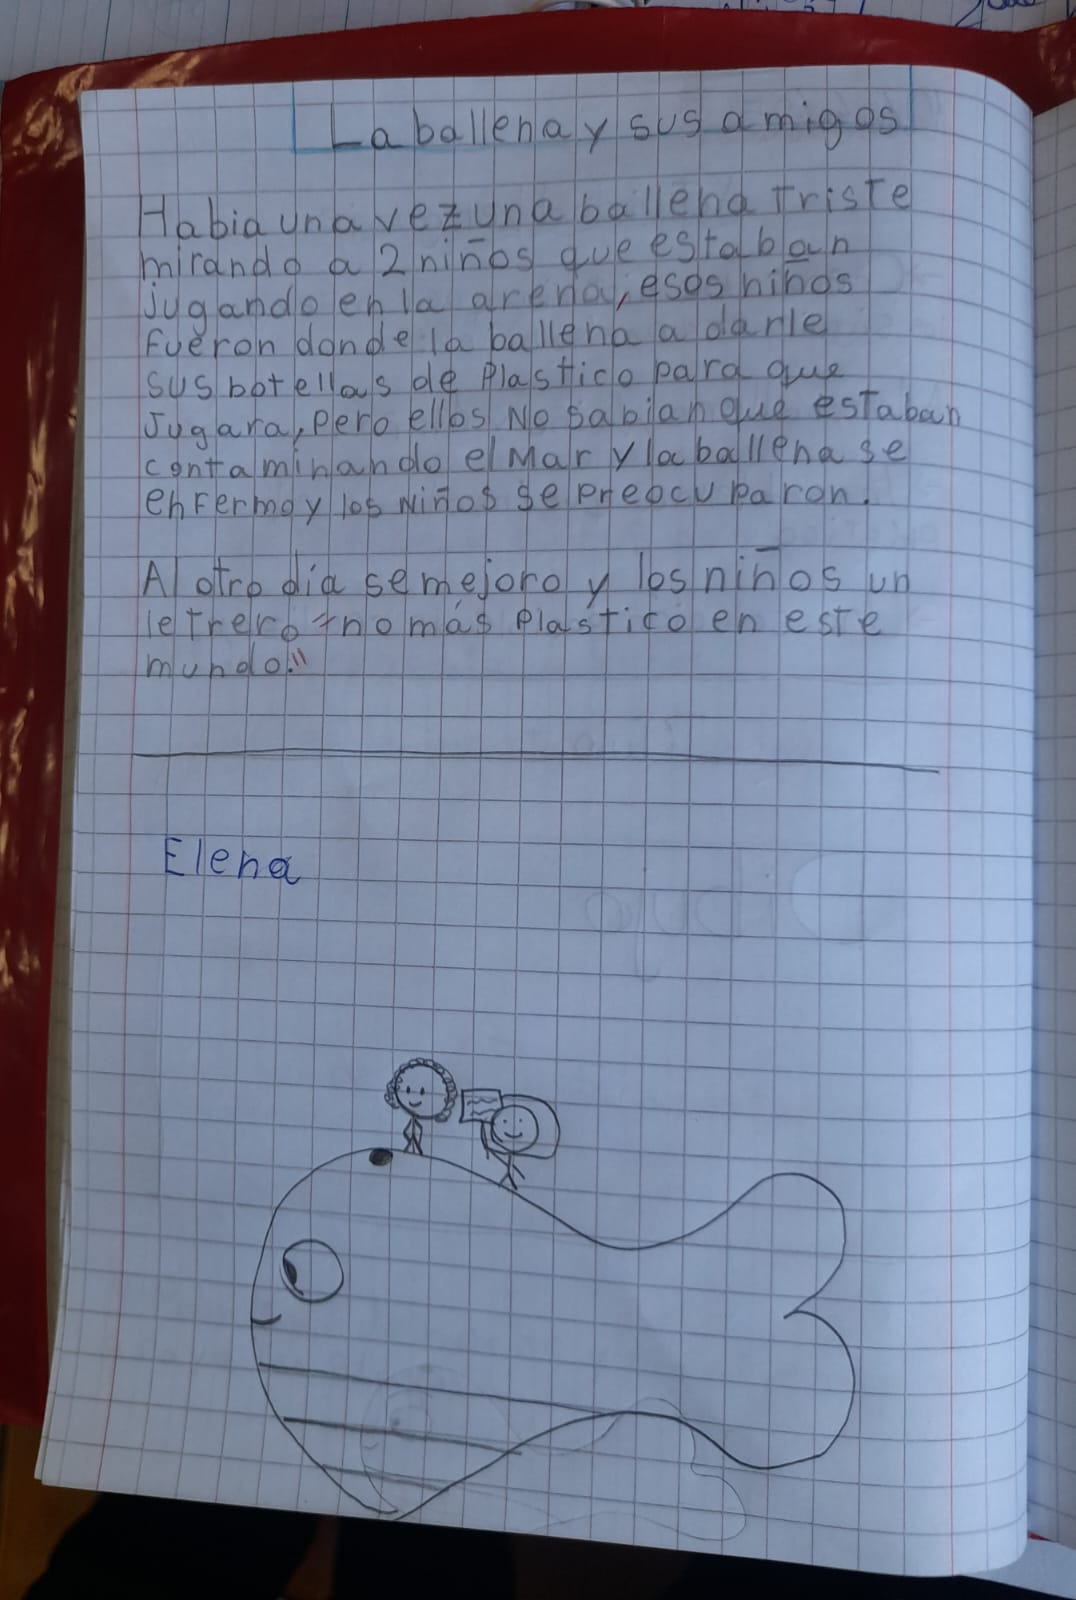 La ballena y sus amigos
Habia una vez una ballena triste
mirando a 2 niños que estaban
jugando en la arena, esos niños
fueron donde la ballena a darle
sus botellas de plastico para que
Jugara, pero ellos No sabian que estaban
contaminando el Mar y la ballena se
enfermo y los Niños se preocuparon.
Al otro día se mejoro y los niños un
letrero no más plastico en este
mundo."
Elena